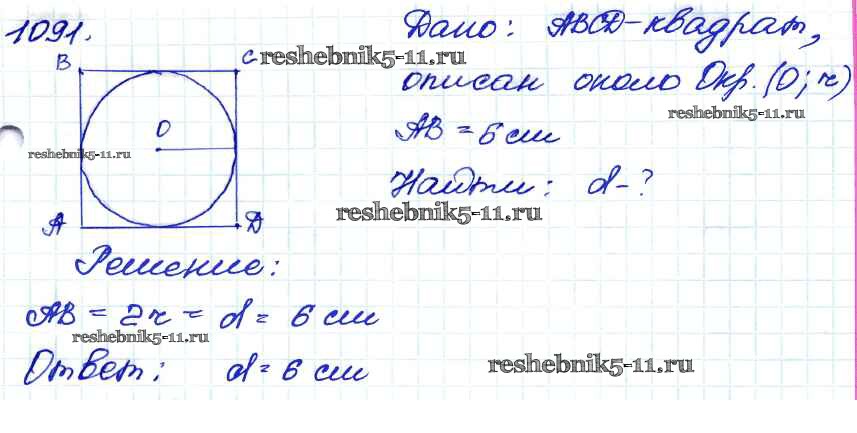 1091.
Дано: ABCD-квадрат,
B C reshebnik5-11.ru
описан около Окр. (O; r)
reshebnik5-11.ru
O AB = 6 см
reshebnik5-11.ru
Найти: d-?
reshebnik5-11.ru
A D
Решение:
AB = 2r = d = 6 см
reshebnik5-11.ru
Ответ: d = 6 см
reshebnik5-11.ru